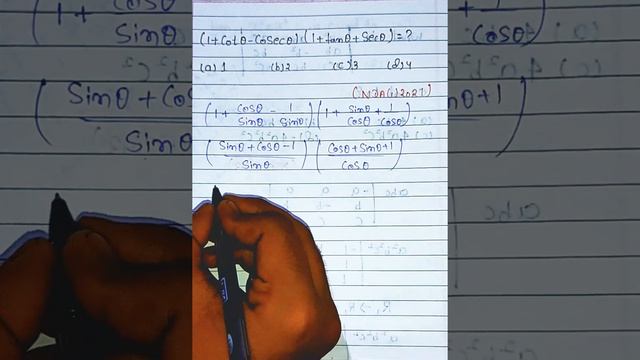 (1+Cotθ-Cosecθ).(1+tanθ+Secθ)=?
(a) 1 (b) 2 (c) 3 (d) 4
(NDA(I)2021)
(1+ Cosθ/Sinθ - 1/Sinθ)(1+ Sinθ/Cosθ + 1/Cosθ)
(Sinθ+Cosθ-1/Sinθ)(Cosθ+Sinθ+1/Cosθ)